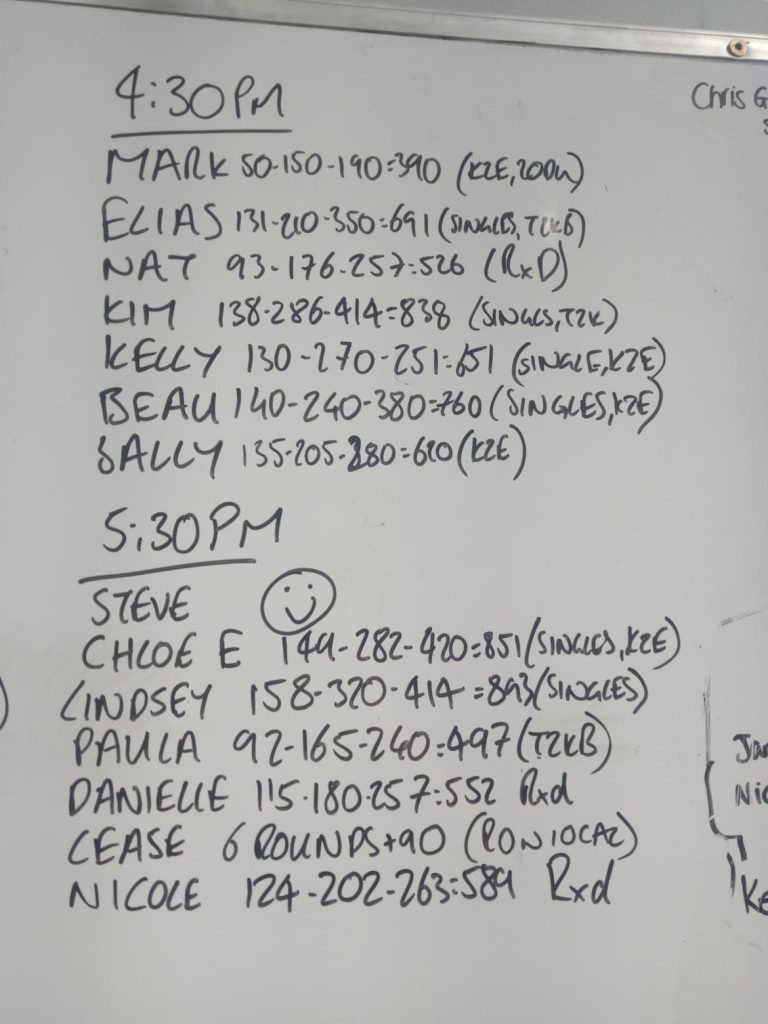 4:30PM
Chris G
MARK 50-150-190=390 (K2E, 200m)
ELIAS 131-210-350=691 (SINGLES, T2KB)
NAT 93-176-257=526 (RxD)
KIM 138-286-414=838 (SINGLES, T2K)
KELLY 130-270-251=651 (SINGLE, K2E)
BEAU 140-240-380=760 (SINGLES, K2E)
SALLY 135-205-280=620 (K2E)
5:30PM
STEVE
CHLOE E 149-282-420=851 (SINGLES, K2E)
LINDSEY 158-320-414=893 (SINGLES)
PAULA 92-165-240=497 (T2KB)
DANIELLE 115-180-257=552 Rxd
CEASE 6 ROUNDS+90
NICOLE 124-202-263=589 Rxd
Jan
Nic
Ke